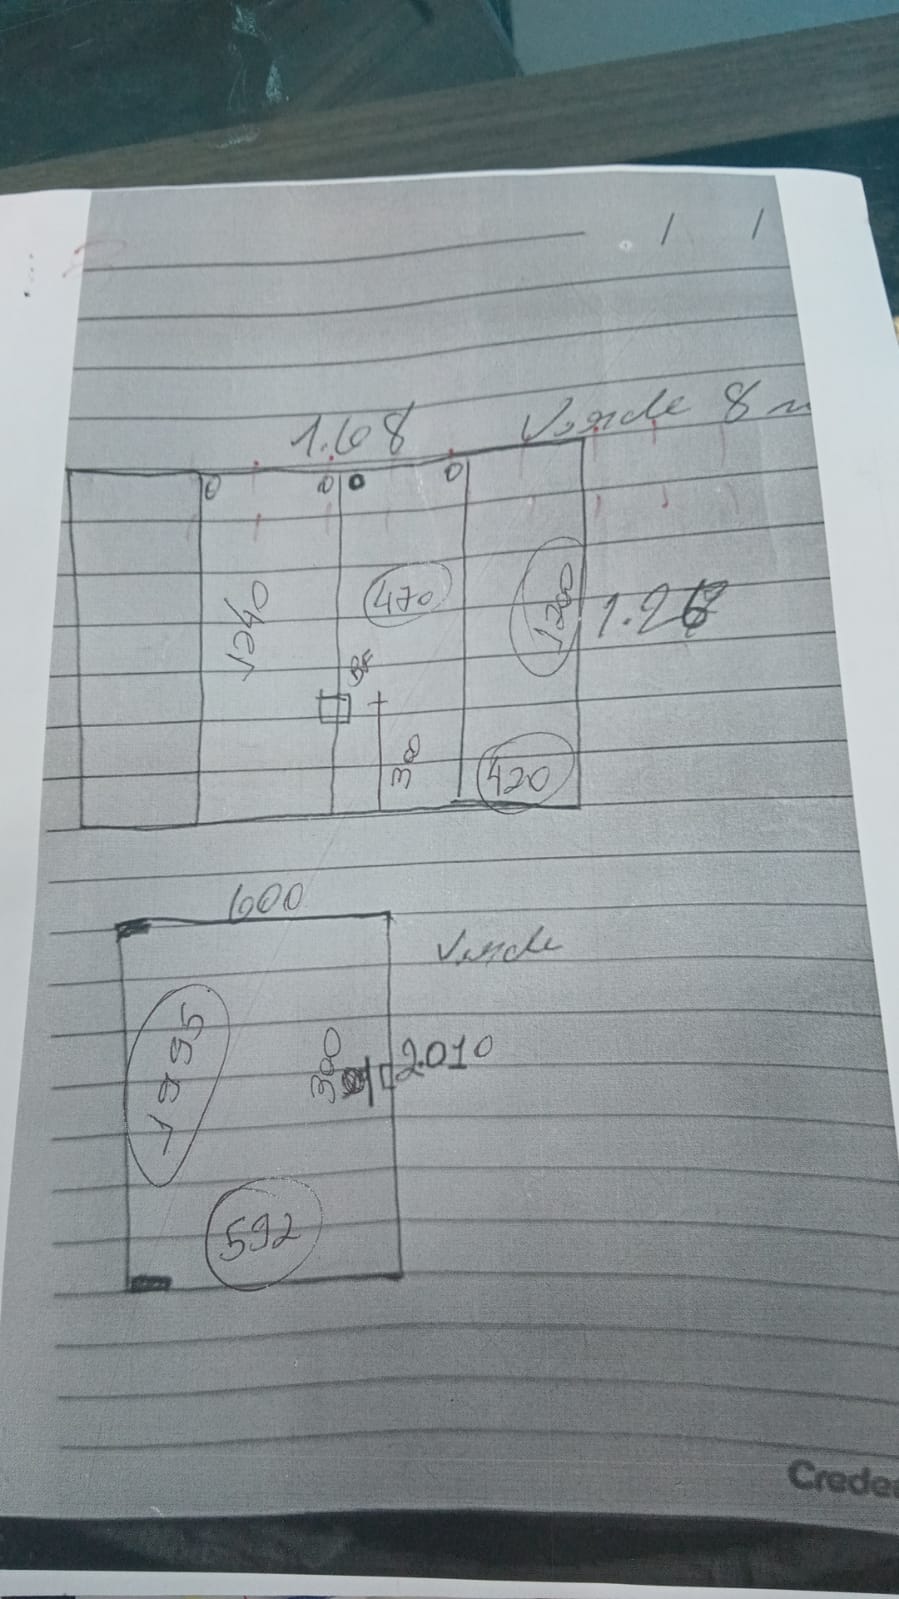 1.68
Verde 8 m
470
1240
1200
1.26
BF
300
420
600
Verde
1995
300
2.010
592
Crede